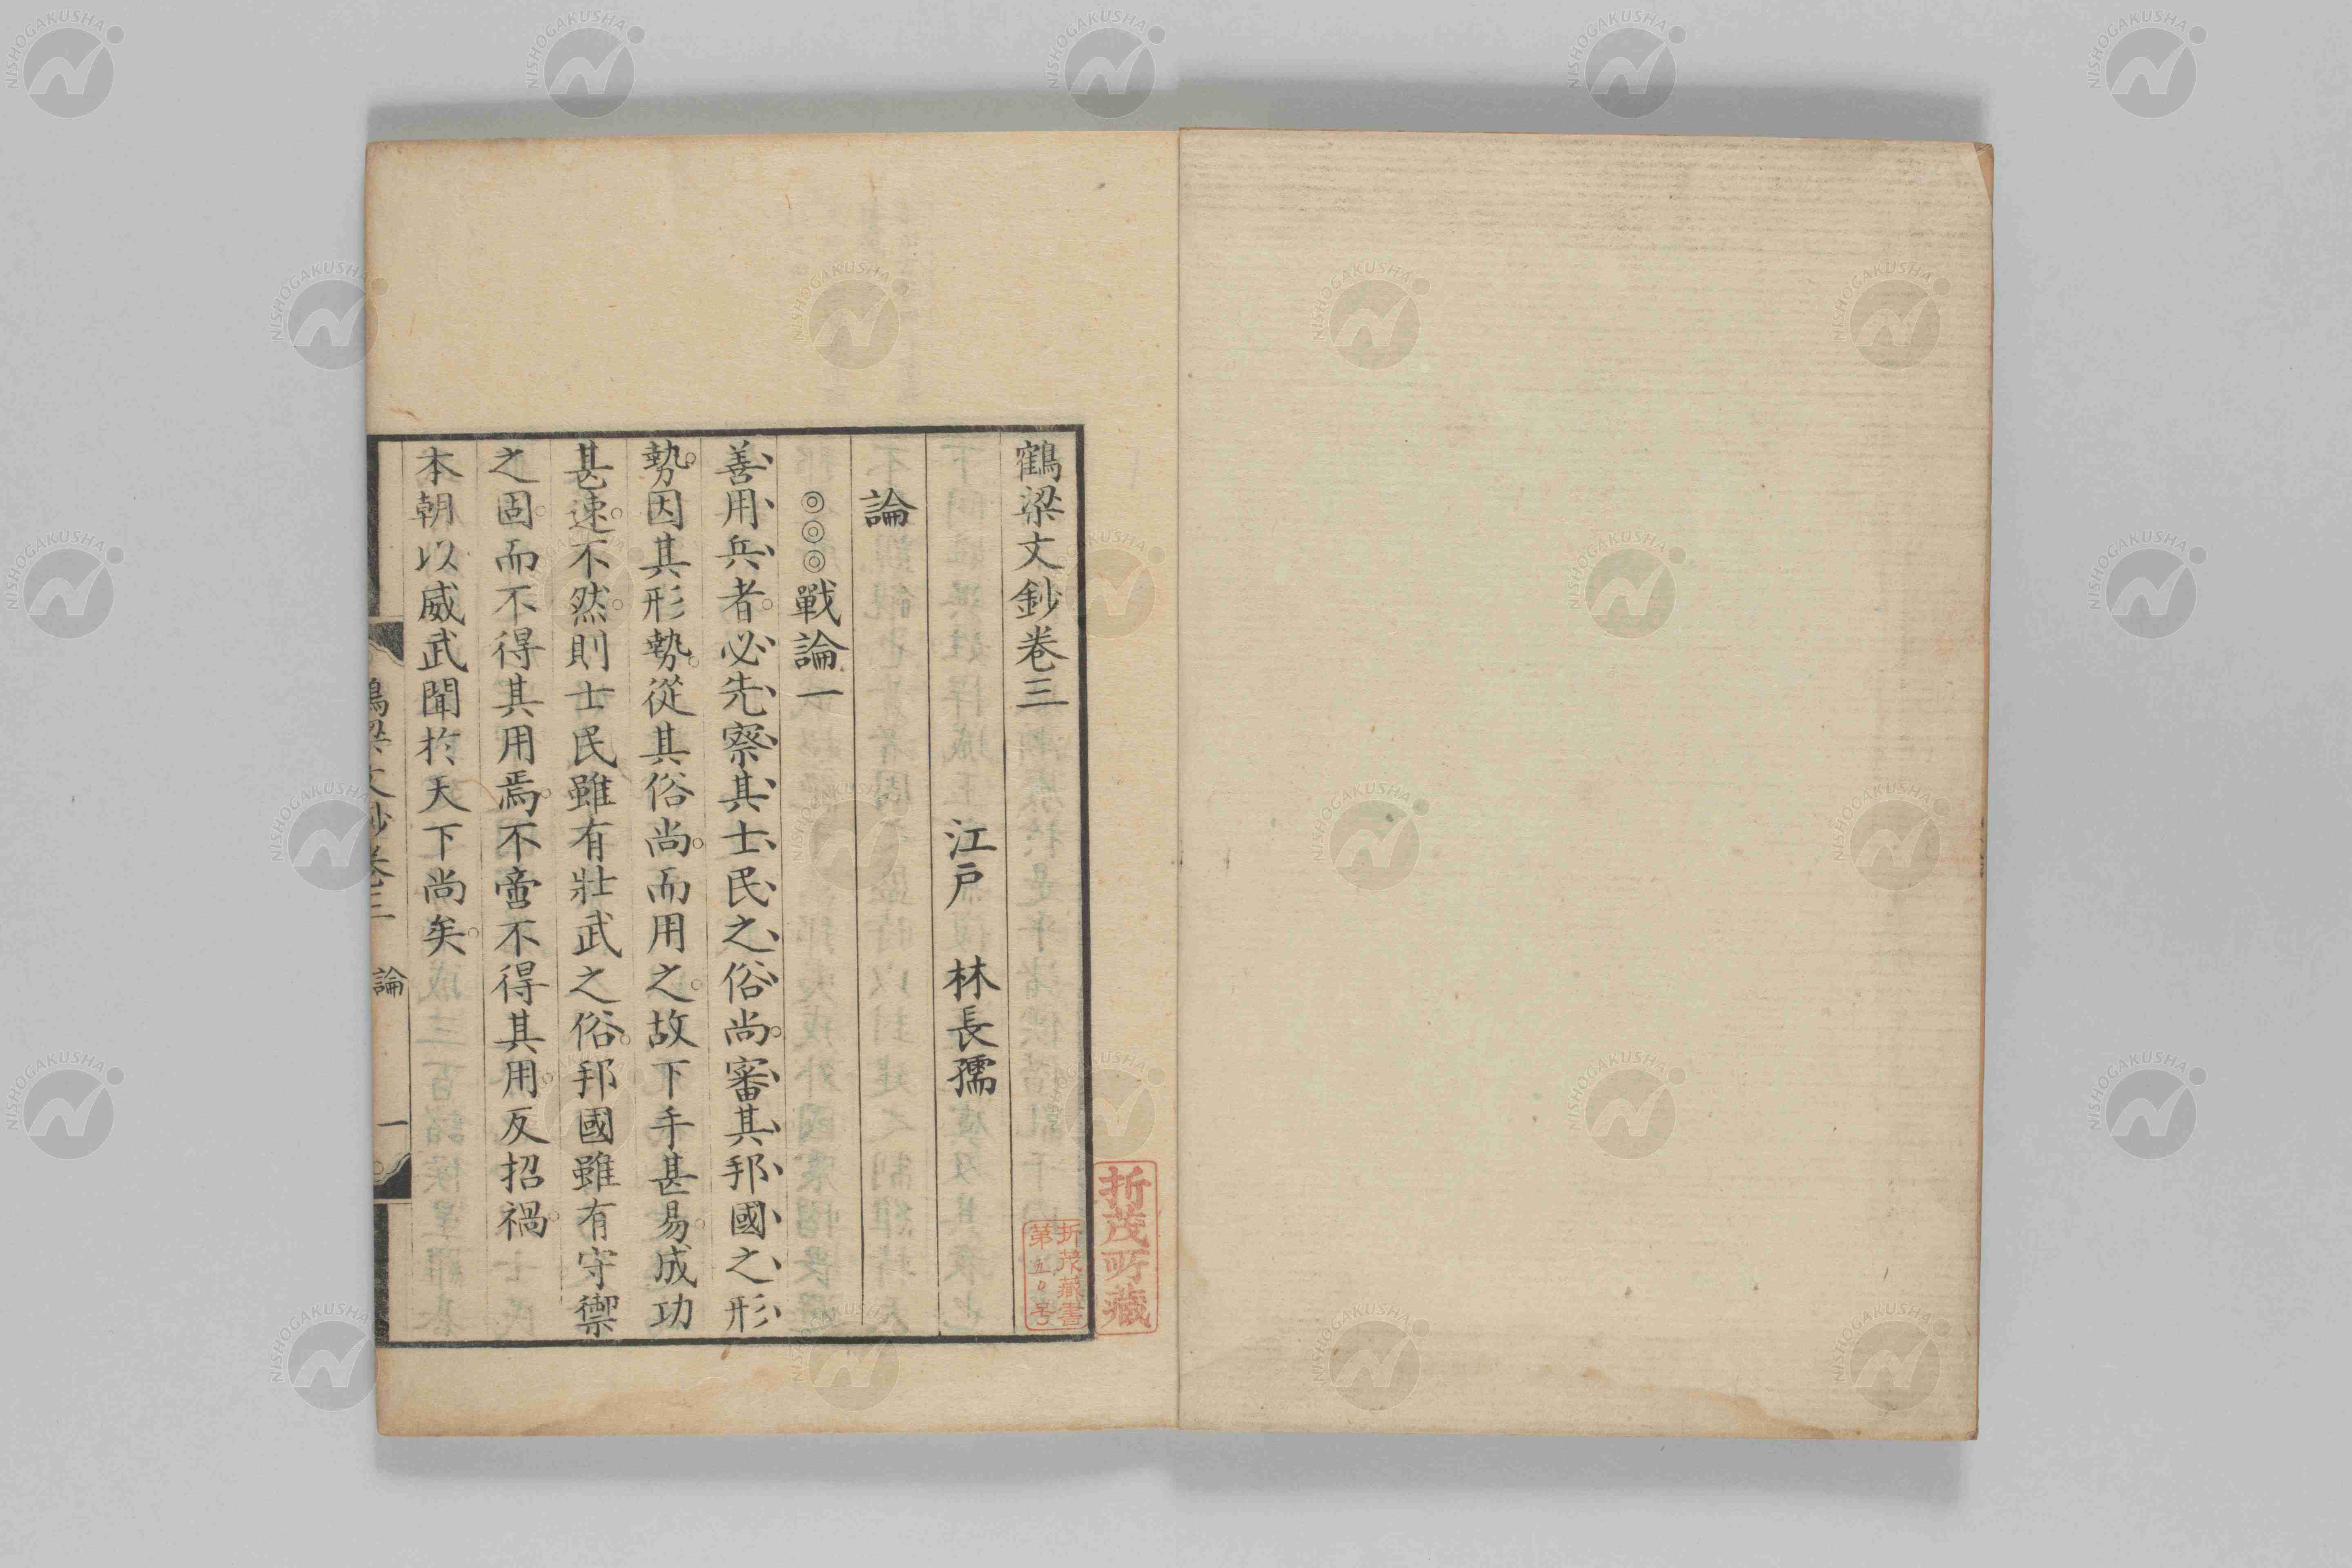 鶴梁文鈔卷三
江戸 林長孺
論
◎◎◎戰論一
善用兵者。必先察其士民之俗尚。審其邦國之形
勢。因其形勢。從其俗尚。而用之。故下手甚易。成功
甚速。不然。則士民雖有壯武之俗。邦國雖有守禦
之固。而不得其用焉。不啻不得其用。反招禍。
本朝以威武聞於天下尚矣。
鶴梁文鈔卷三 論 一
折茂所藏
折茂藏書
第五〇号
NISHOGAKUSHA